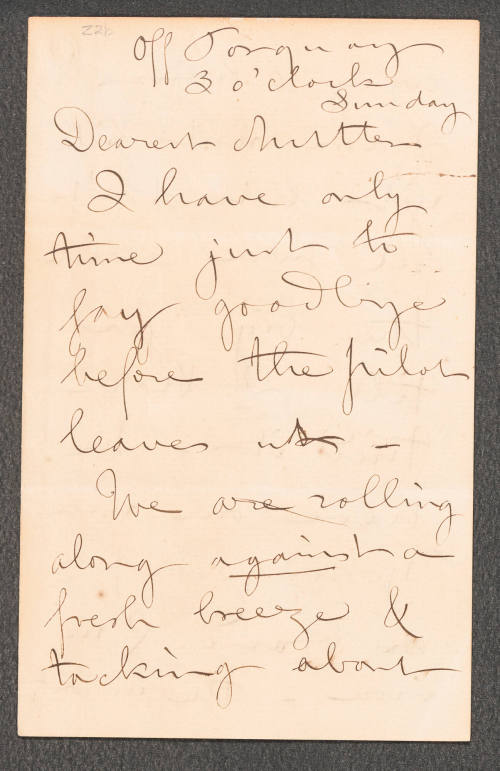 Off Torquay
3 o'clock
Sunday
Dearest Mutter
I have only
time just to
say goodbye
before the pilot
leaves us –
We are rolling
along against a
fresh breeze &
tacking about